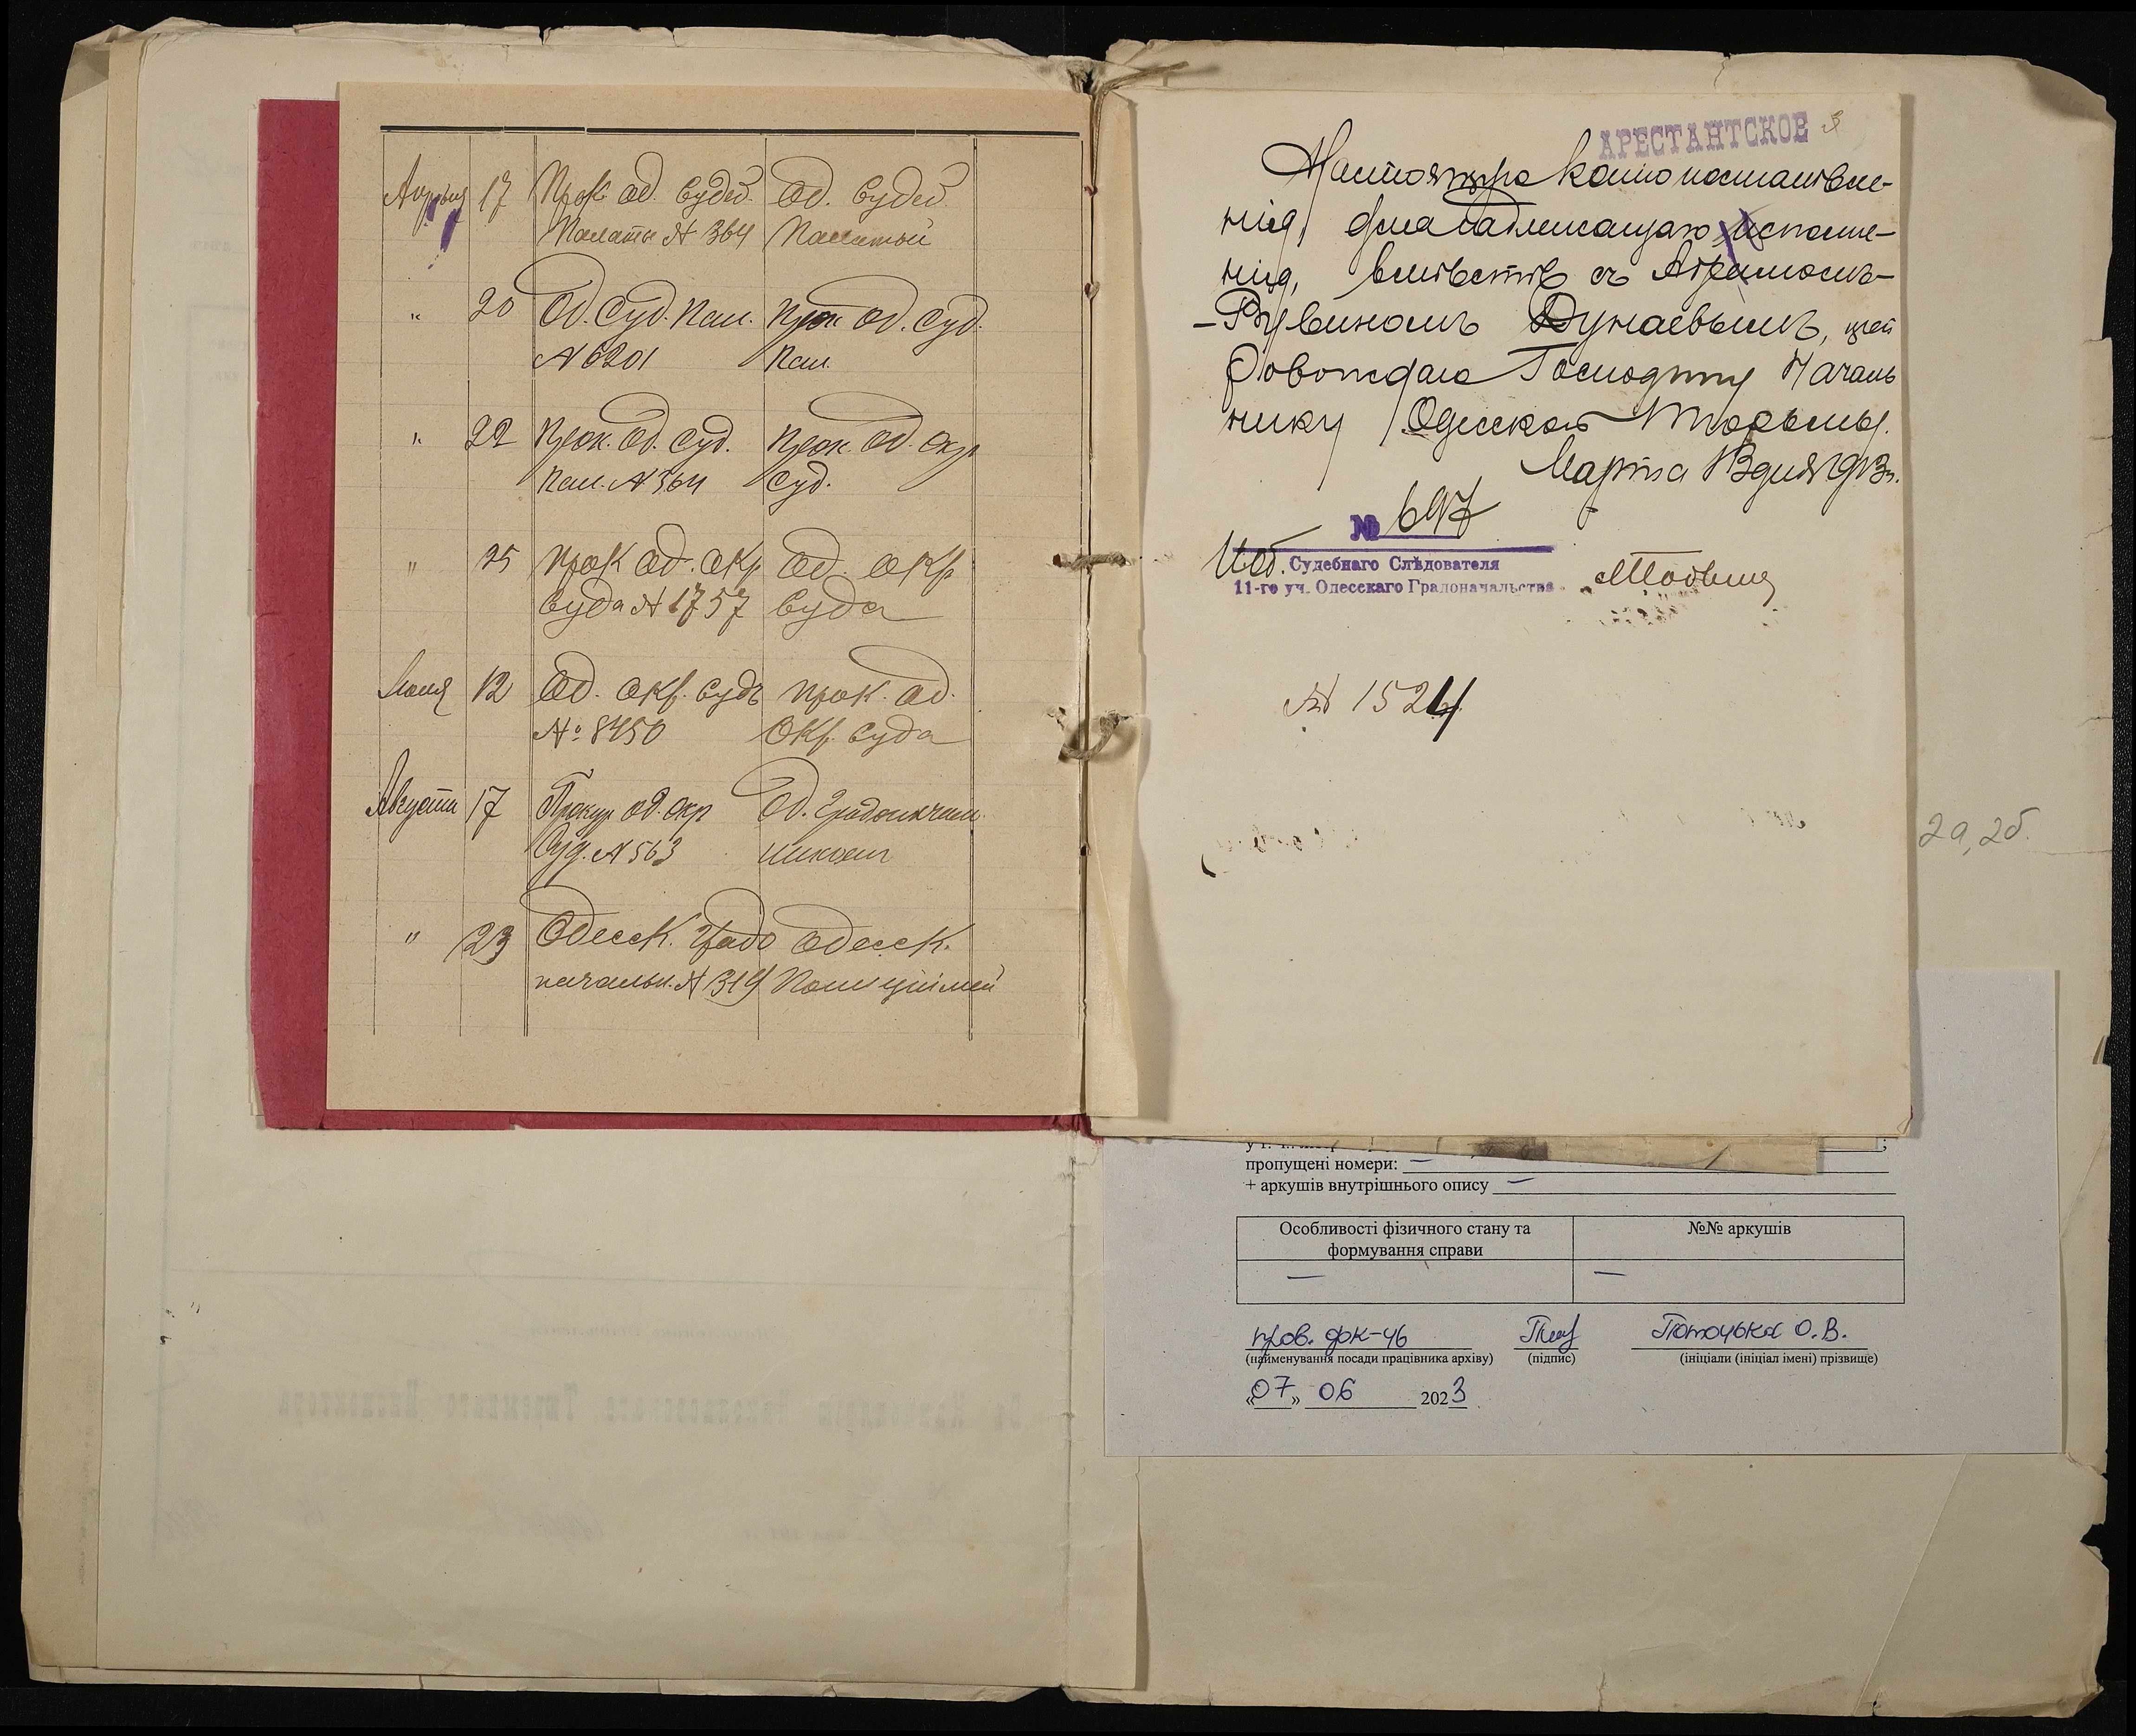 Апрѣля 17 Прок. Од. Судеб. Од. Судеб.
Палаты № 364 Палатой
" 20 Од. Суд. Пал. Прок. Од. Суд.
№ 6201 Пал.
" 22 Прок. Од. Суд. Прок. Од. Окр.
Пал. № 364 Суд.
" 25 Прок. Од. Окр. Од. Окр.
Суда № 1757 Суда
12 Од. Окр. Судъ Прок. Од.
№ 8450 Окр. Суда
Августа 17 Прокур. Од. Окр. Од. Градоначаль
Суд. № 563
" 23 Одесск. Градо Одесск.
начальн. № 1319 Полиціімей
АРЕСТАНТСКОЕ
Настоящую копію постановле-
нія, для надлежащаго исполне-
нія, вмѣстѣ съ Абрамомъ-
-Рувиномъ Дунаевымъ, пре
провождаю Господину Началь
нику Одесской Тюрьмы.
Марта 13 дня 1913 г.
№ 697
И. об. Судебнаго Слѣдователя
11-го уч. Одесскаго Градоначальства
№ 1524
2а, 2б.
пропущені номери: —
+ аркушів внутрішнього опису —
Особливості фізичного стану та формування справи
№№ аркушів
— —
пров. док-ч Поточька О.В.
(найменування посади працівника архіву) (підпис) (ініціали (ініціал імені) прізвище)
«07» 06 2023